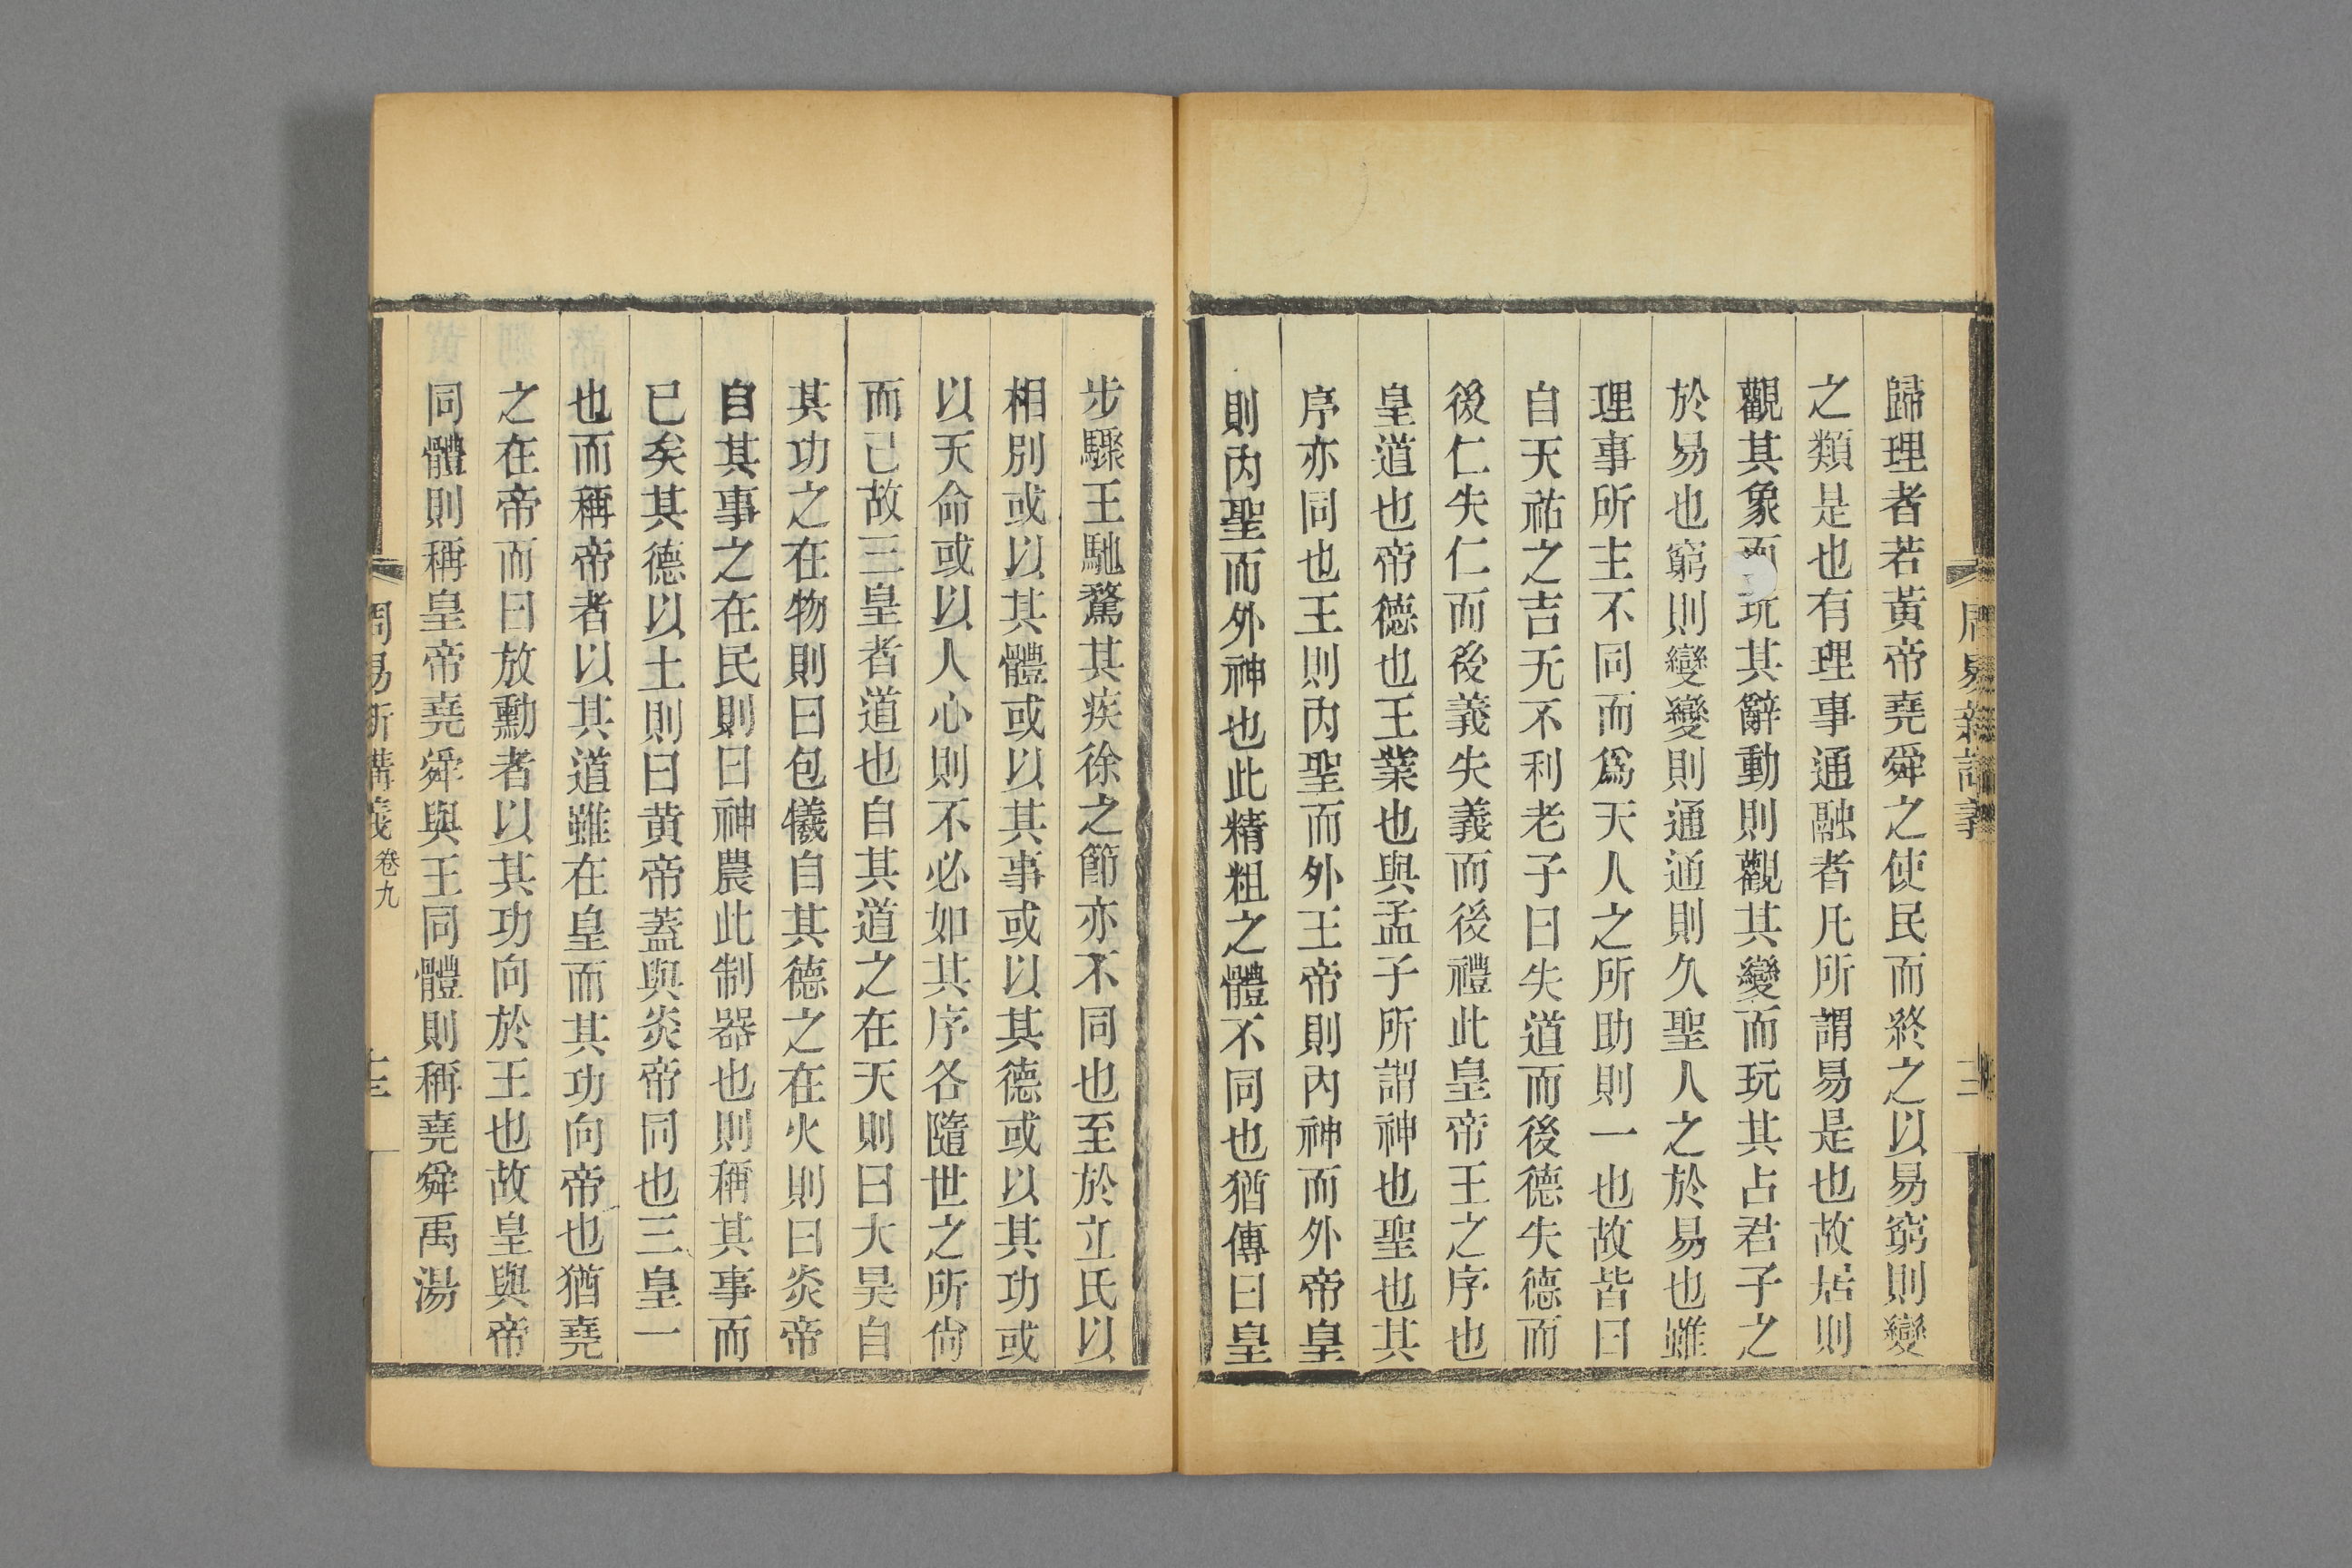 歸理者若黃帝堯舜之使民而終之以易窮則變
之類是也有理事通融者凡所謂易是也故居則
觀其象而玩其辭動則觀其變而玩其占君子之
於易也窮則變變則通通則久聖人之於易也雖
理事所主不同而爲天人之所助則一也故皆曰
自天祐之吉无不利老子曰失道而後德失德而
後仁失仁而後義失義而後禮此皇帝王之序也
皇道也帝德也王業也與孟子所謂神也聖也其
序亦同也王則內聖而外王帝則內神而外帝皇
則內聖而外神也此精粗之體不同也猶傳曰皇
步驟王馳騖其疾徐之節亦不同也至於立氏以
相別或以其體或以其事或以其德或以其功或
以天命或以人心則不必如其序各隨世之所尙
而已故三皇者道也自其道之在天則曰大昊自
其功之在物則曰包犧自其德之在火則曰炎帝
自其事之在民則曰神農此制器也則稱其事而
已矣其德以土則曰黃帝蓋與炎帝同也三皇一
也而稱帝者以其道雖在皇而其功向帝也猶堯
之在帝而曰放勳者以其功向於王也故皇與帝
同體則稱皇帝堯舜與王同體則稱堯舜禹湯
周易新講義 卷九 十三